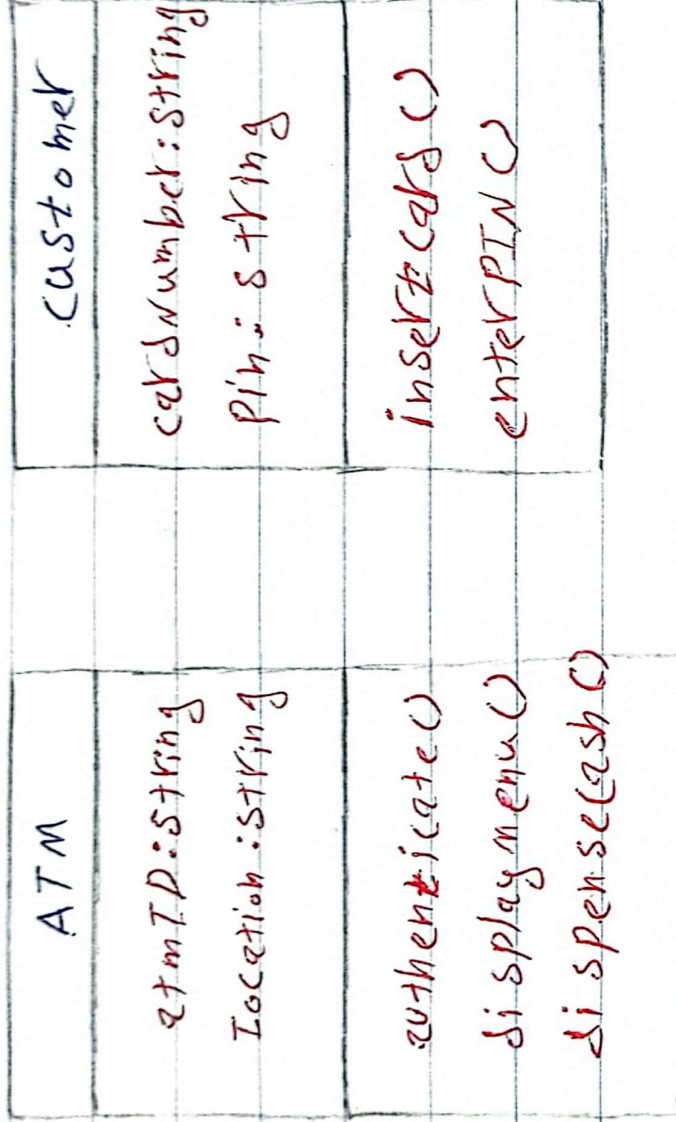 ATM
atmID:string
Location:string
authenticate()
displaymenu()
dispensecash()
customer
cardNumber:string
Pin:string
insertcard()
enterPIN()